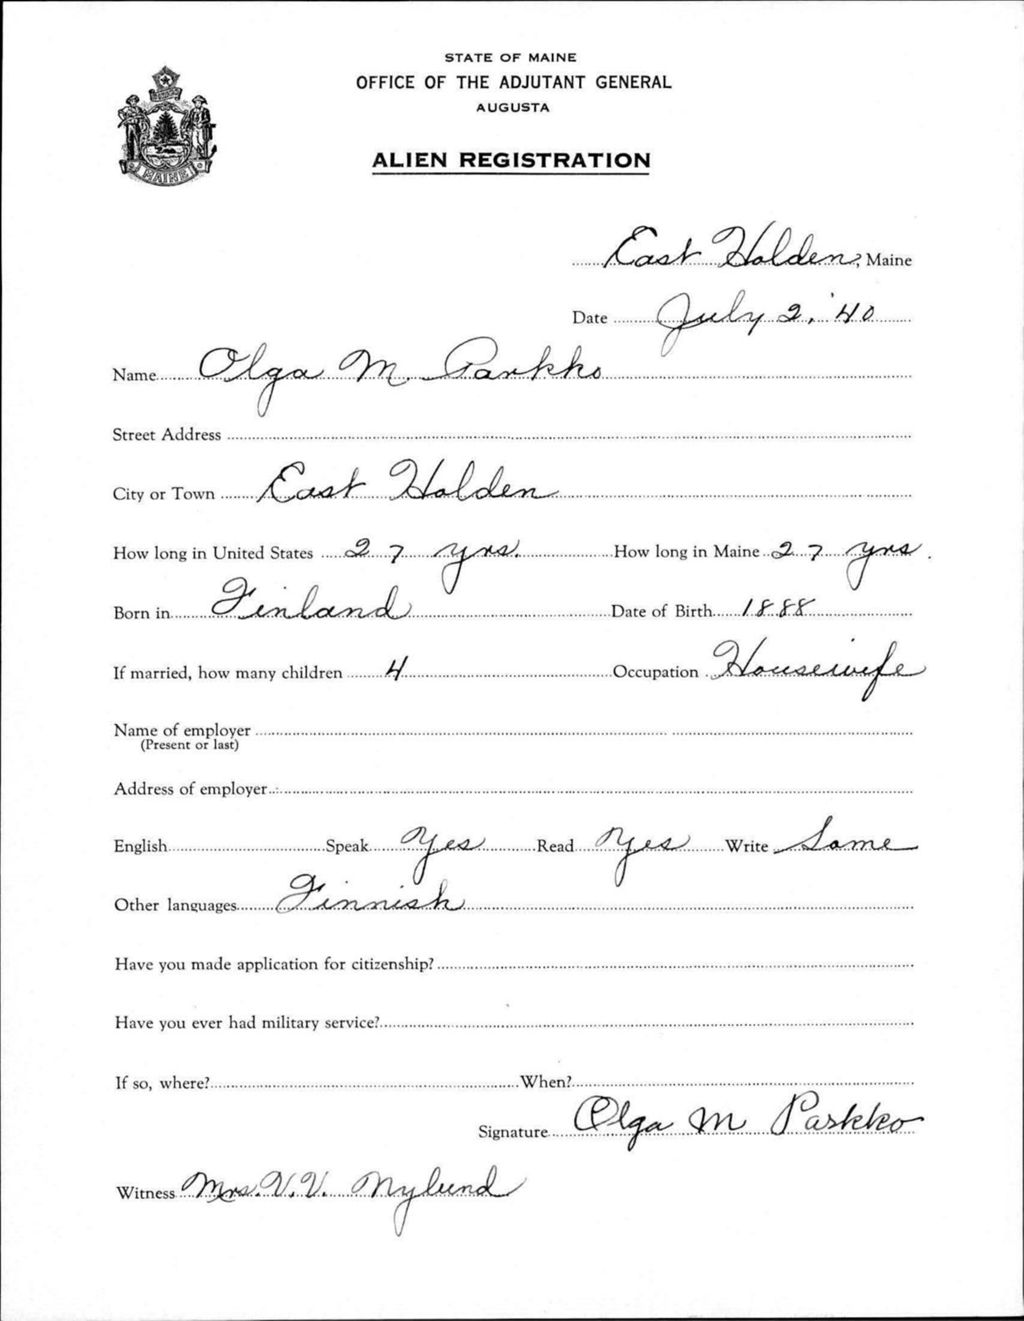 STATE OF MAINE
OFFICE OF THE ADJUTANT GENERAL
AUGUSTA
ALIEN REGISTRATION
MAINE
East Holden, Maine
Date July 2, '40
Name Olga M. Parkko
Street Address
City or Town East Holden
How long in United States 27 yrs. How long in Maine 27 yrs.
Born in Finland Date of Birth 1888
If married, how many children 4 Occupation Housewife
Name of employer
(Present or last)
Address of employer
English Speak Yes Read Yes Write Some
Other languages Finnish
Have you made application for citizenship?
Have you ever had military service?
If so, where? When?
Signature Olga M Parkko
Witness Mrs. V. V. Nylund